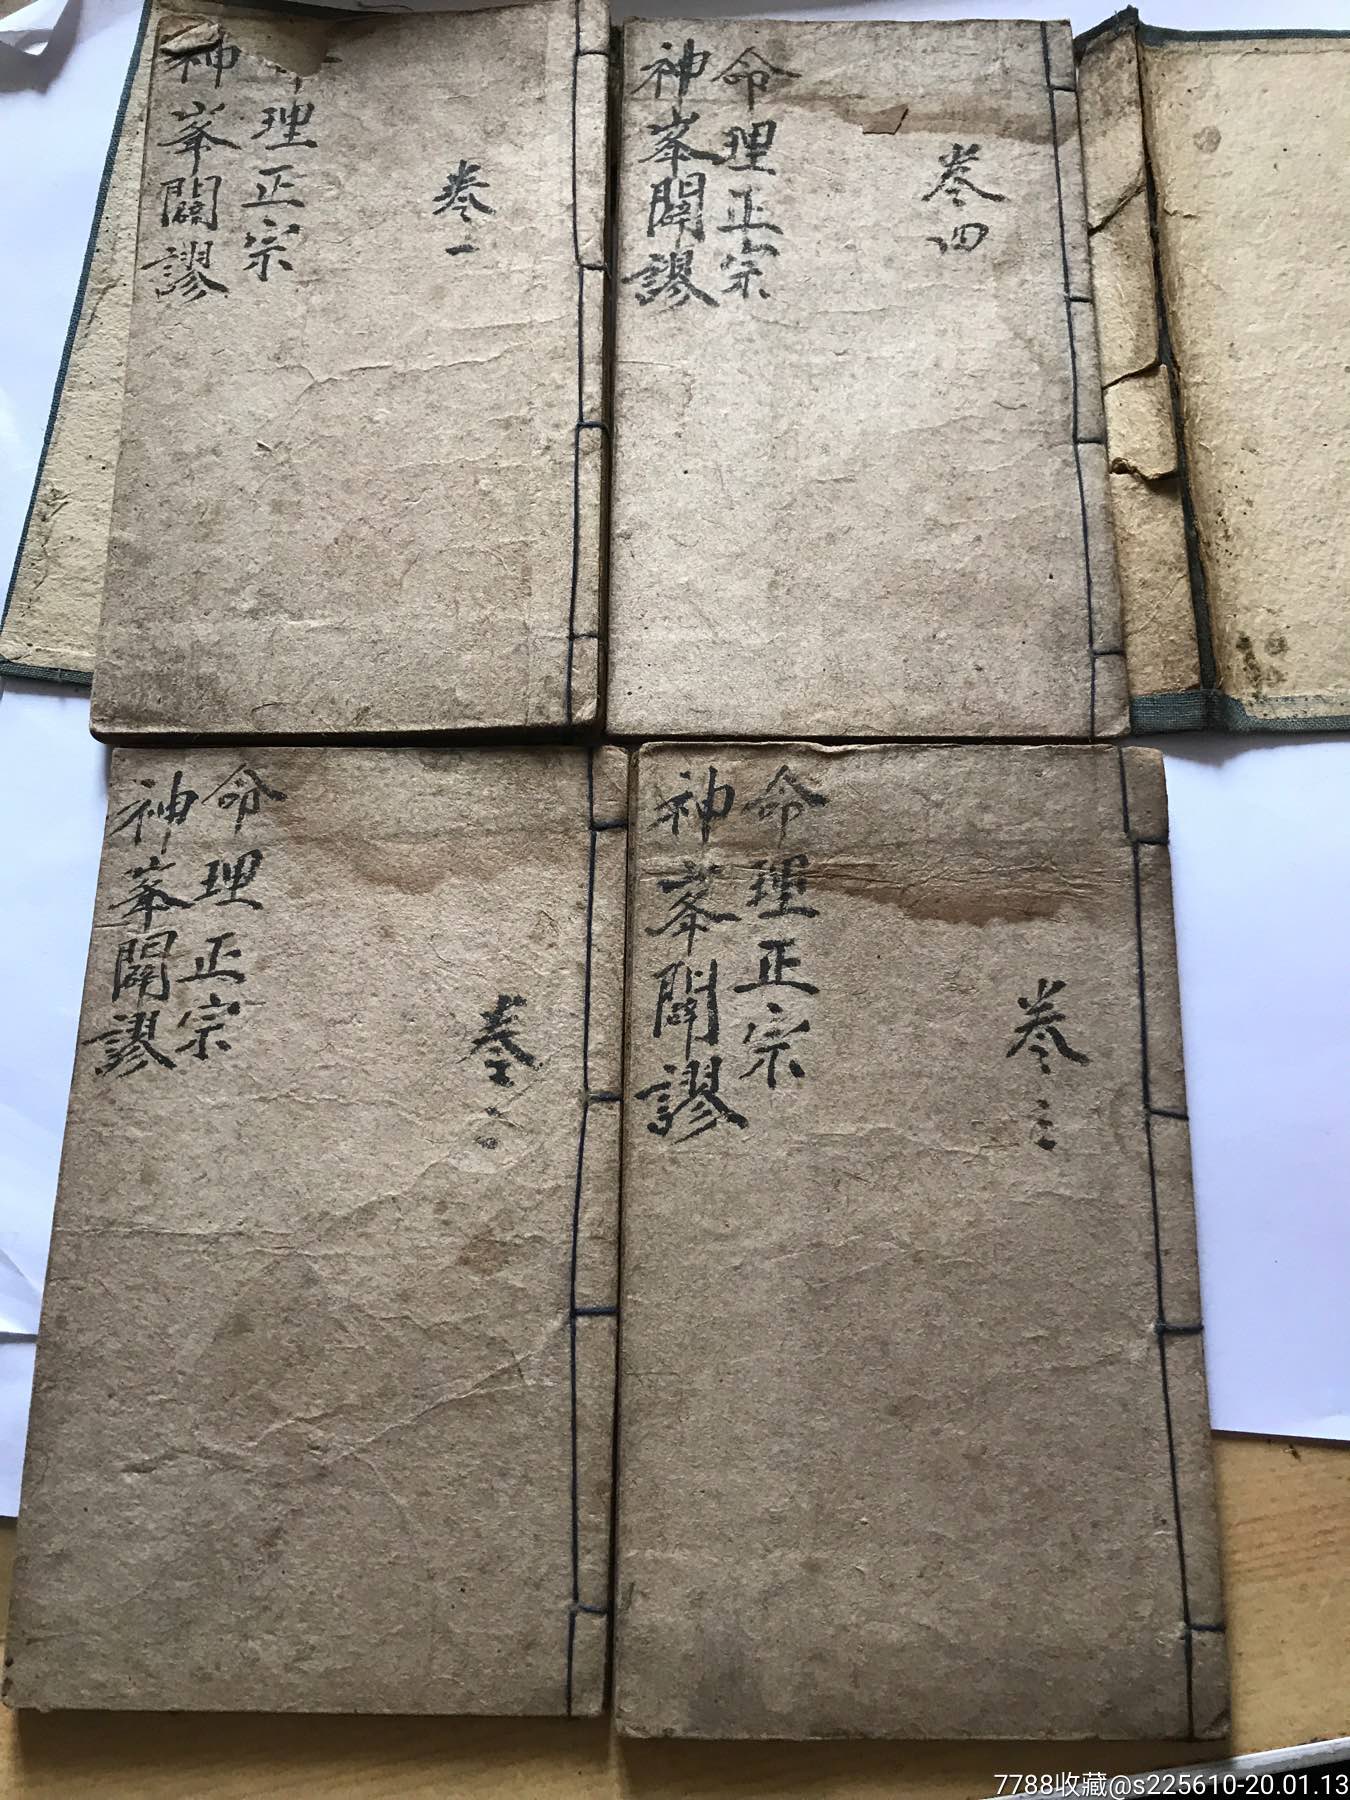 卷一
命理正宗
神峯闢謬
卷四
命理正宗
神峯闢謬
卷二
命理正宗
神峯闢謬
卷三
命理正宗
神峯闢謬
7788收藏@s225610-20.01.13